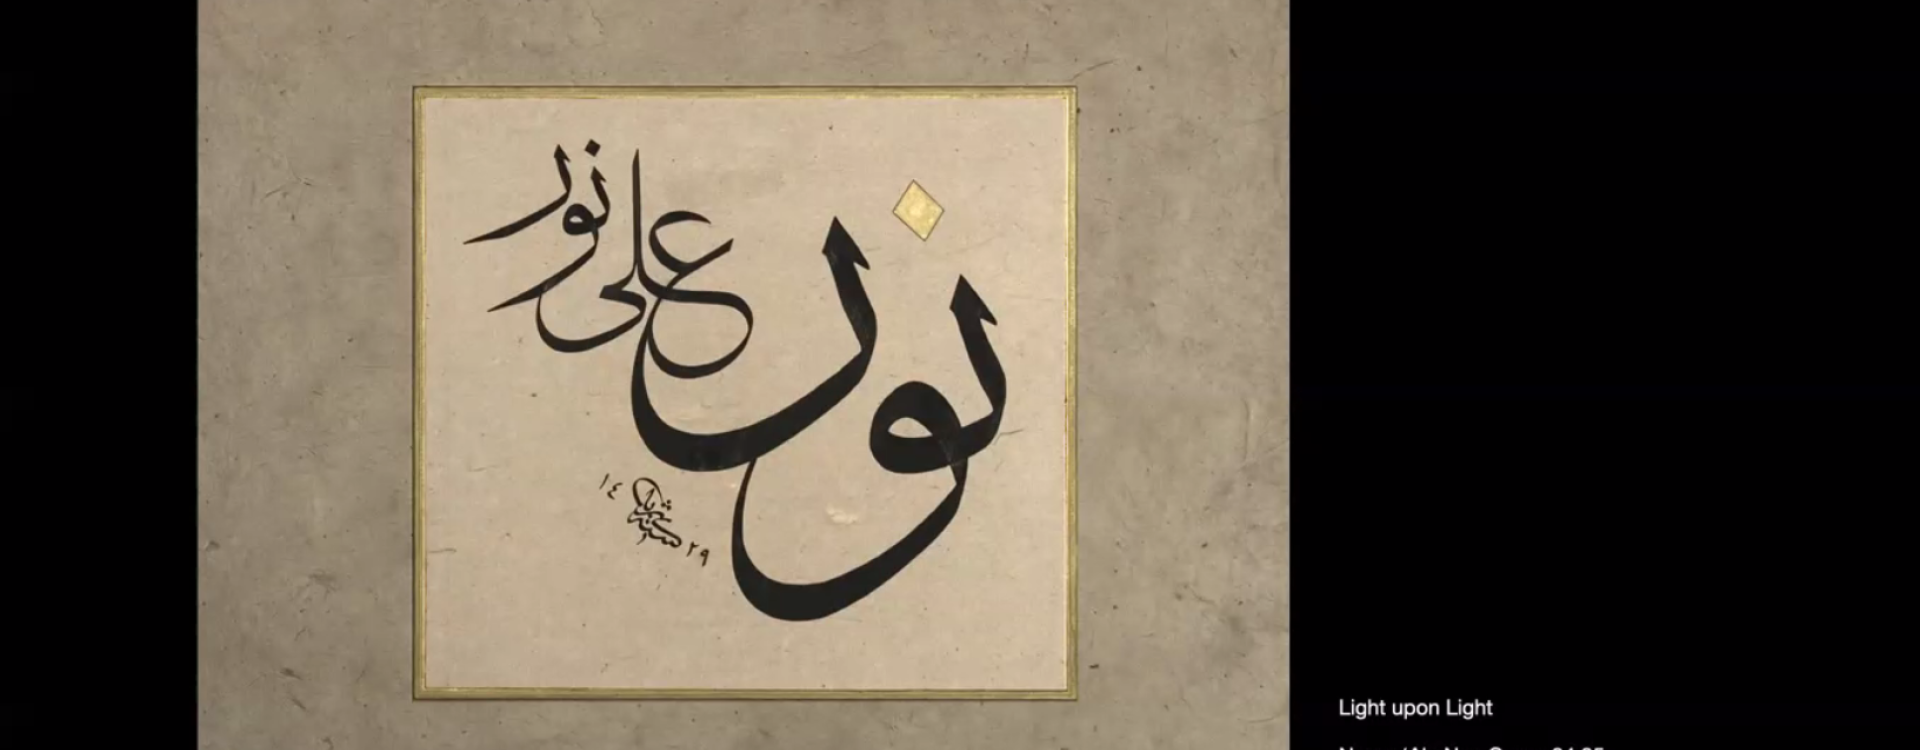 نور على نور
١٤٢٩
Light upon Light